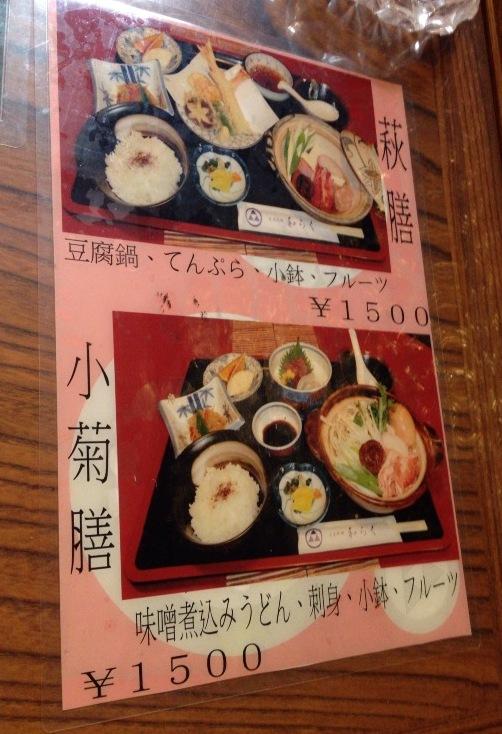 萩膳
豆腐鍋、てんぷら、小鉢、フルーツ
￥1500
小菊膳
味噌煮込みうどん、刺身、小鉢、フルーツ
￥1500